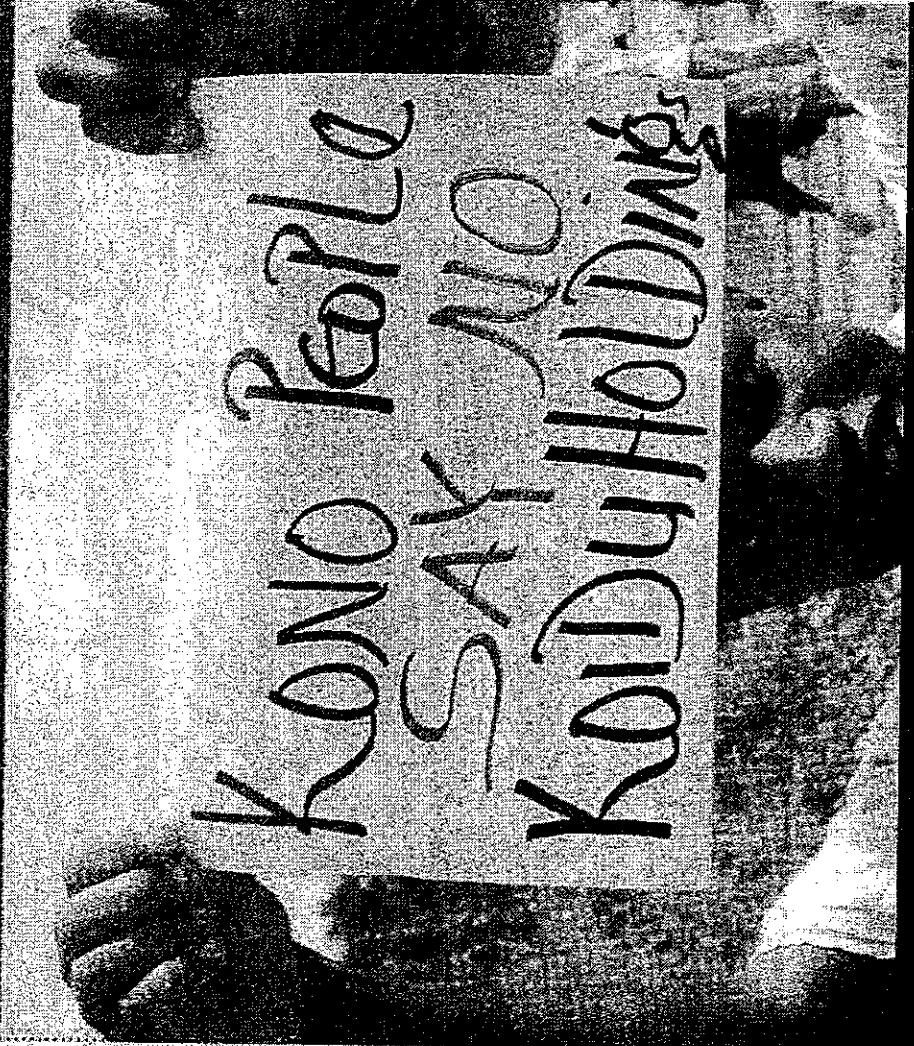 KONO PeoPLe
SAY NO
KOIDU HOLDINGs